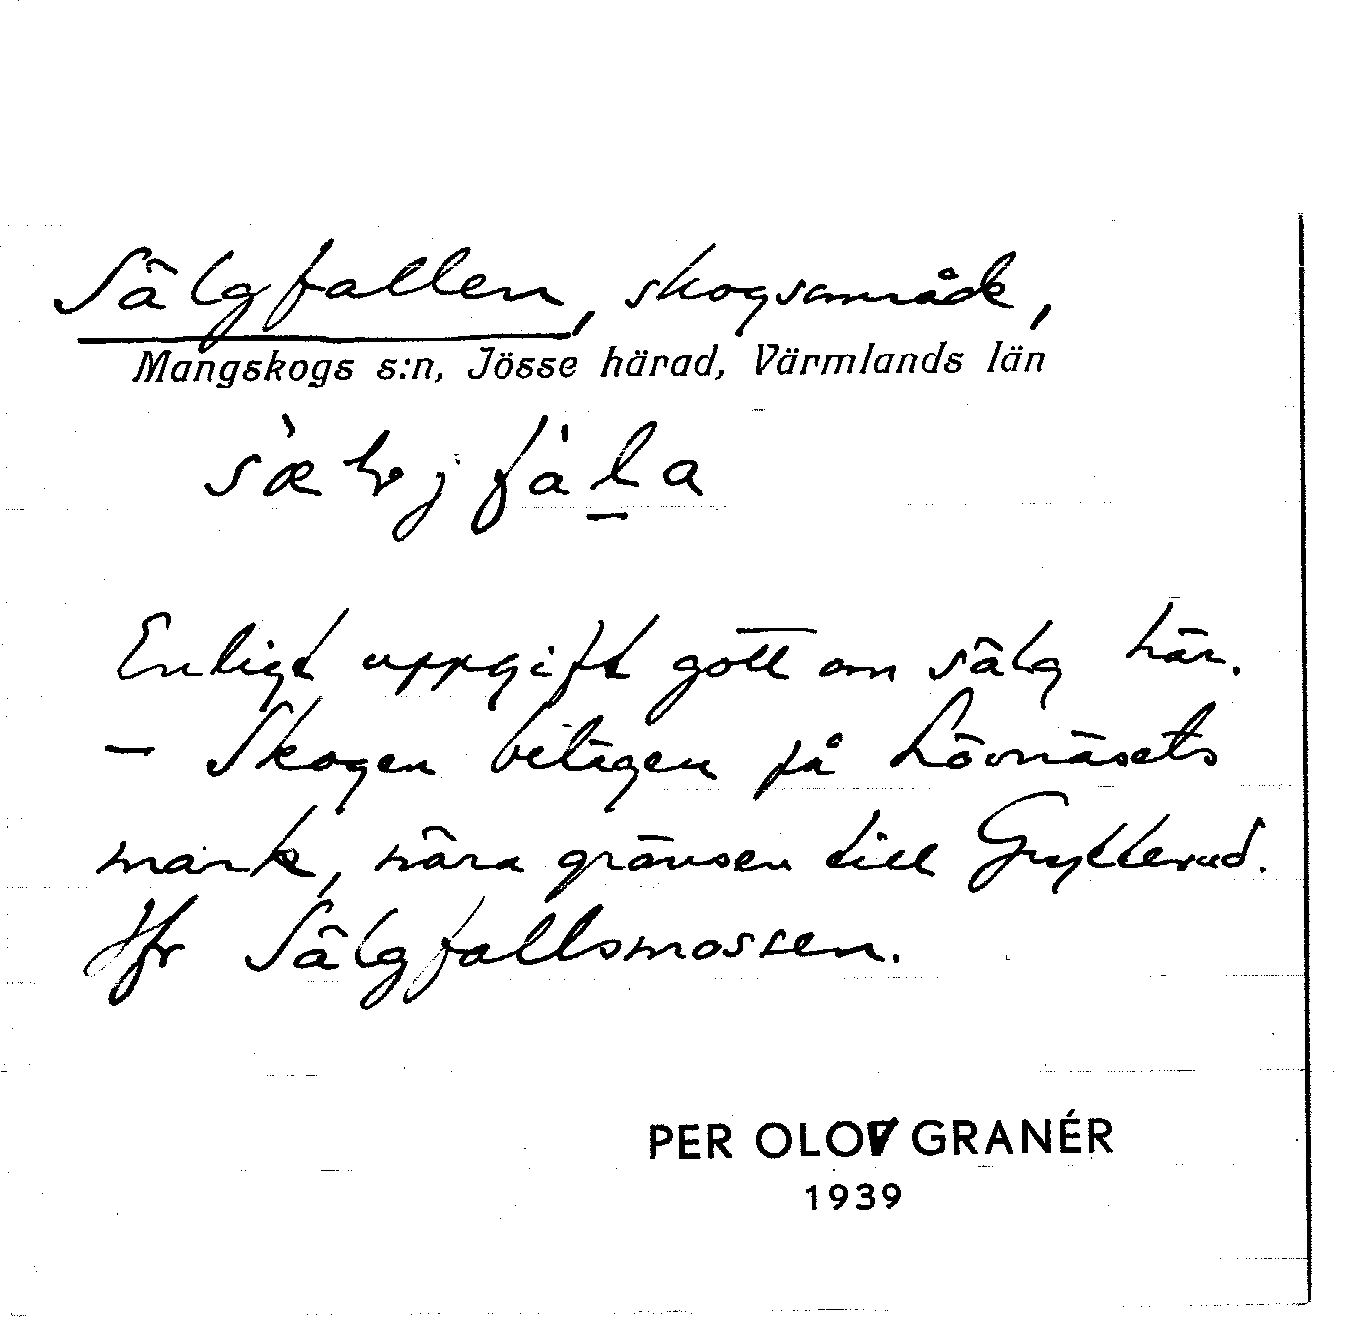 Sälgfallen, skogsområde,
Mangskogs s:n, Jösse härad, Värmlands län
Enligt uppgift gott om sälg här.
— Skogen belägen på Lövnäsets
mark, nära gränsen till Grytterud.
Jfr Sälgfallsmossen.
PER OLOV GRANÉR
1939